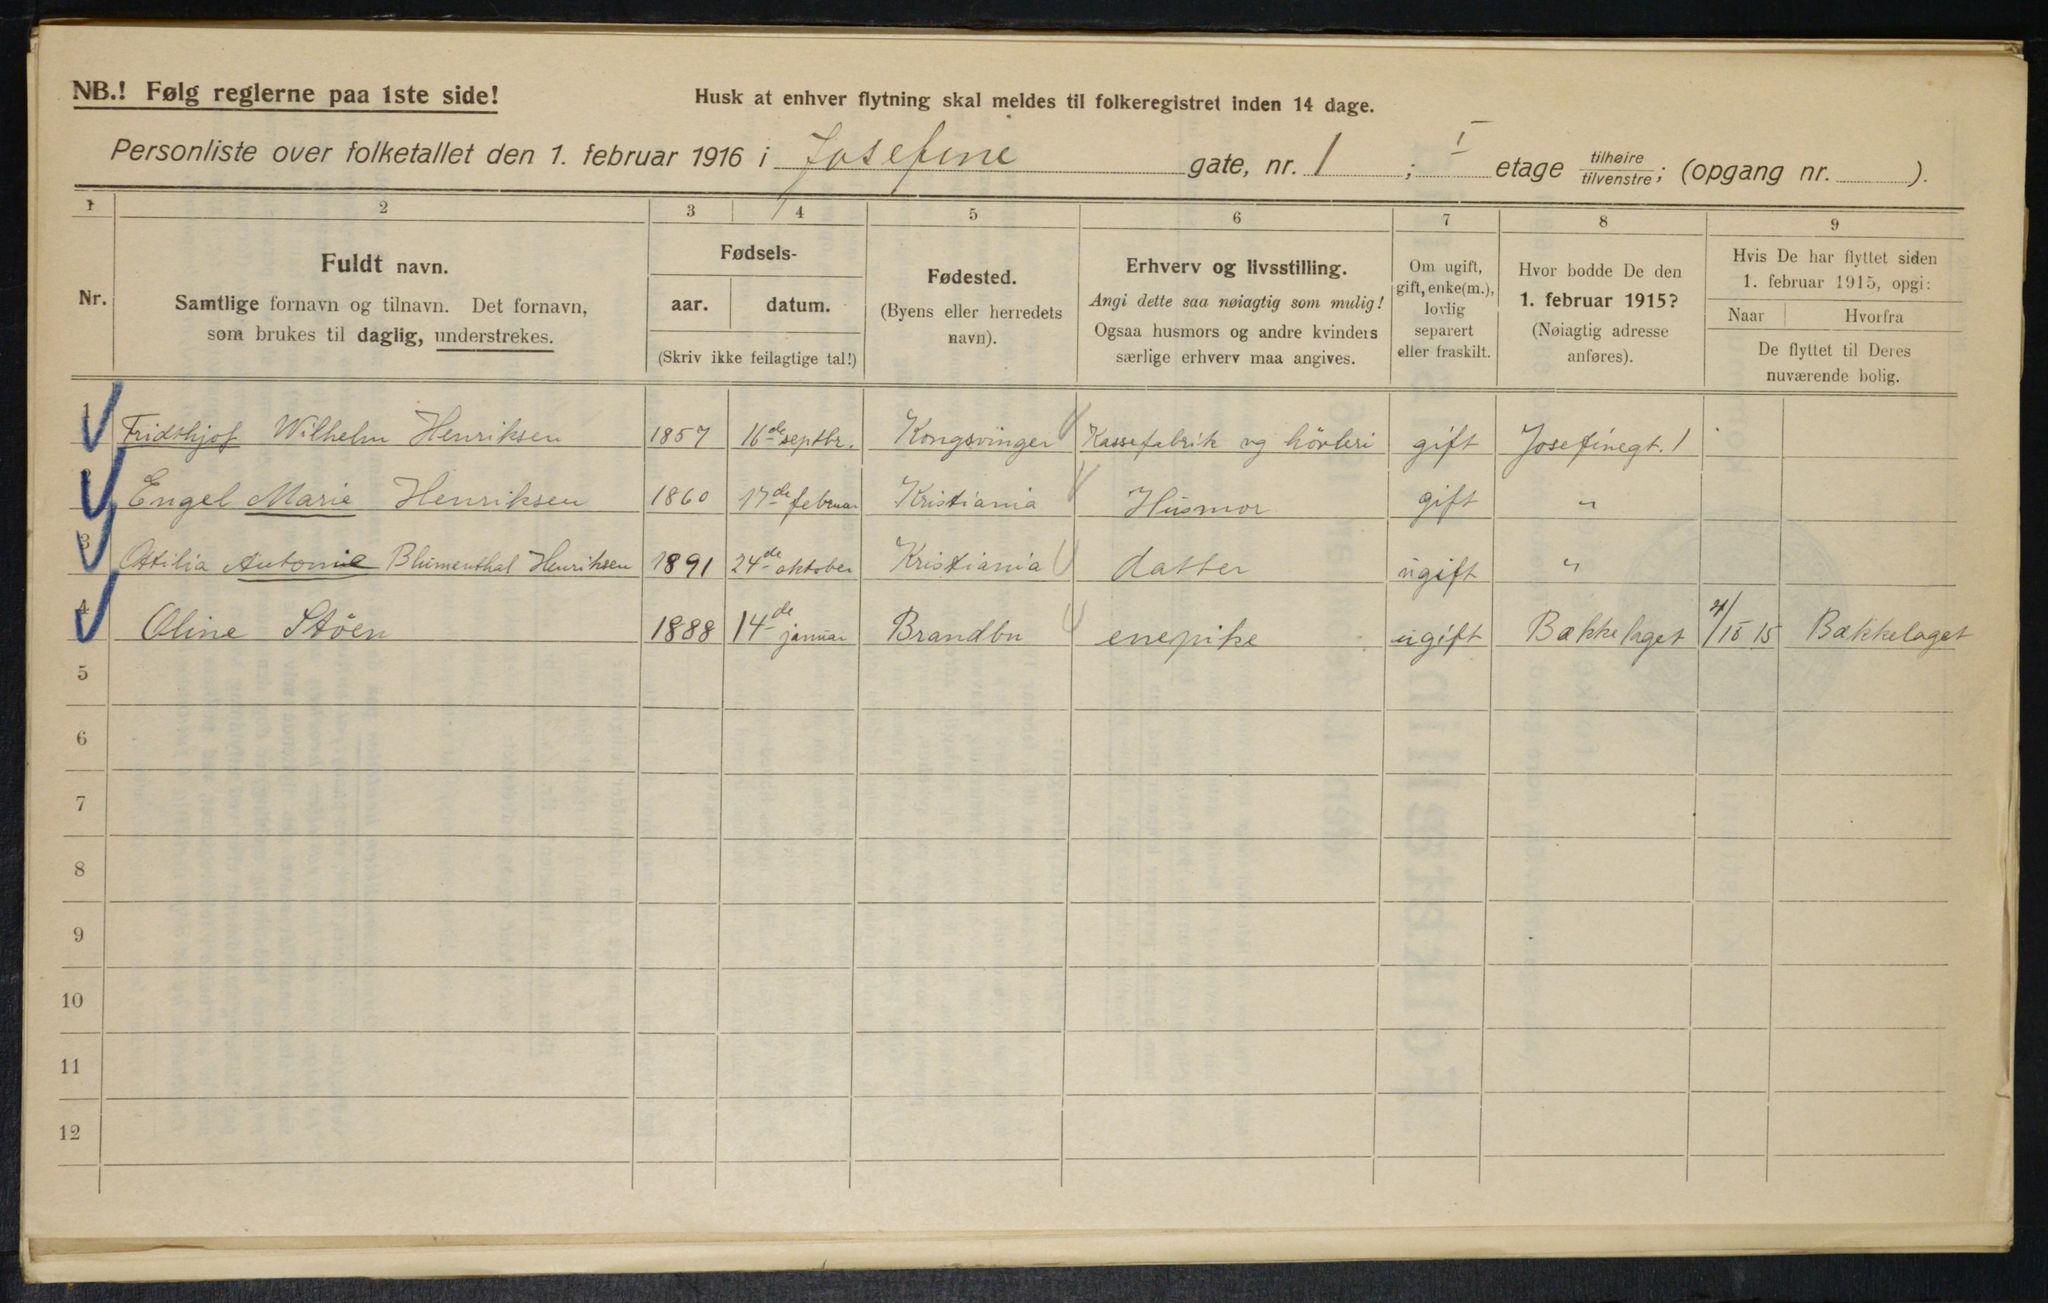 NB.! Følg reglerne paa 1ste side!
Husk at enhver flytning skal meldes til folkeregistret inden 14 dage.
Personliste over folketallet den 1. februar 1916 i Josefine gate, nr. 1 ; I etage tilhøire tilvenstre; (opgang nr. ).
1 2 3 4 5 6 7 8 9
Nr.
Fuldt navn.
Samtlige fornavn og tilnavn. Det fornavn,
som brukes til daglig, understrekes.
Fødsels-
aar. datum.
(Skriv ikke feilagtige tal!)
Fødested.
(Byens eller herredets
navn).
Erhverv og livsstilling.
Angi dette saa nøiagtig som mulig!
Ogsaa husmors og andre kvinders
særlige erhverv maa angives.
Om ugift,
gift, enke(m.),
lovlig
separert
eller fraskilt.
Hvor bodde De den
1. februar 1915?
(Nøiagtig adresse
anføres).
Hvis De har flyttet siden
1. februar 1915, opgi:
Naar Hvorfra
De flyttet til Deres
nuværende bolig.
1 Fridthjof Wilhelm Henriksen 1857 16de septbr. Kongsvinger Kassefabrik og hövleri gift Josefinegt. 1
2 Engel Marie Henriksen 1860 17de februar Kristiania Husmor gift "
3 Ottilia Antonie Blumenthal Henriksen 1891 24de oktober Kristiania datter ugift "
4 Oline Stöen 1888 14de januar Brandbu enepike ugift Bækkelaget 15 Bækkelaget
5
6
7
8
9
10
11
12